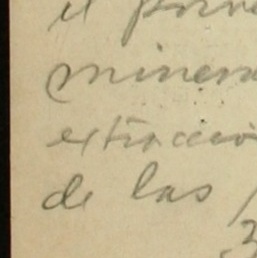 el porve
minera
extracció
de las
3